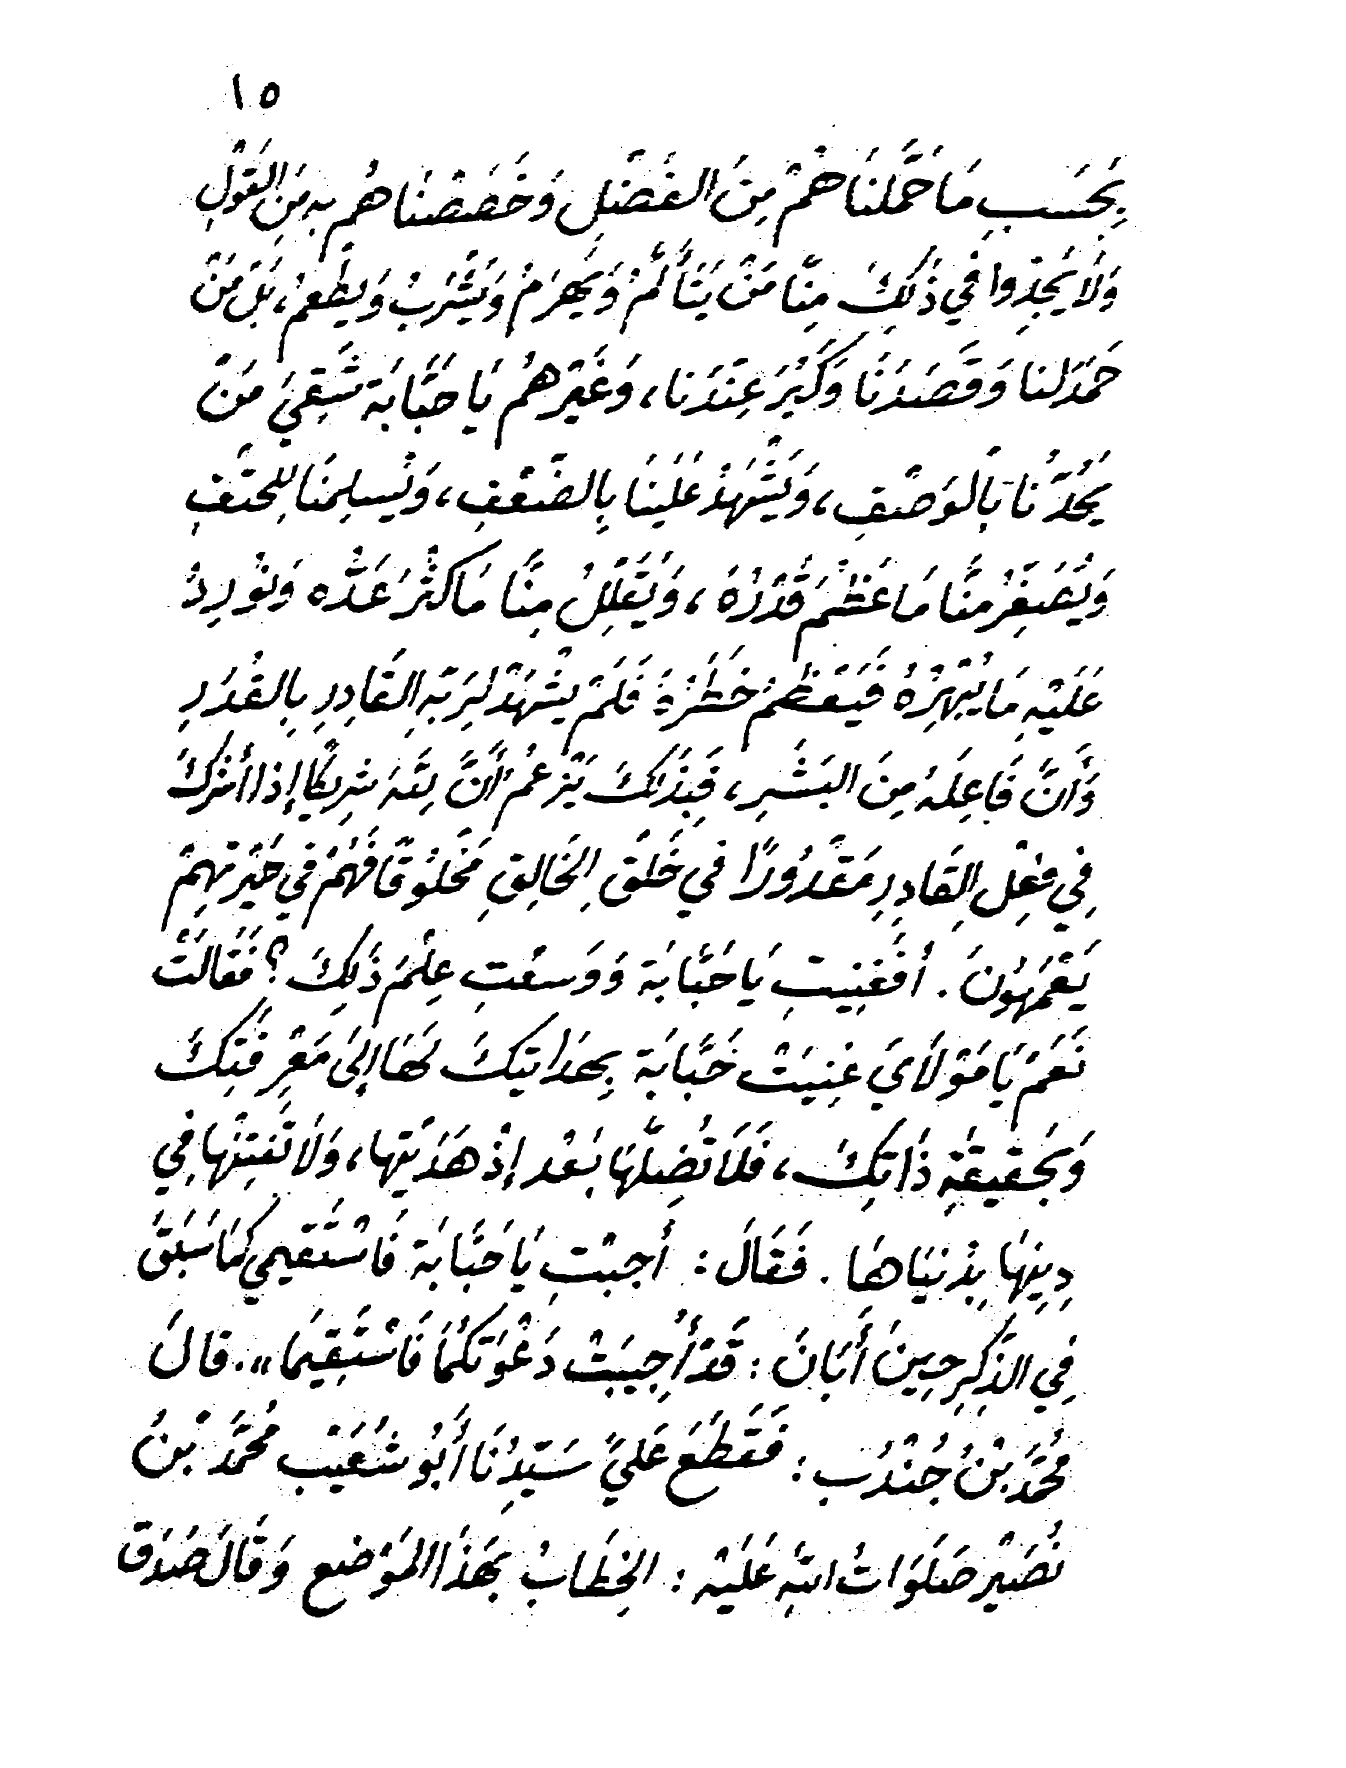 ١٥
بِحَسَبِ مَا حَمَّلنَاهُمْ مِنَ الفَضْلِ وَخَصَصْنَاهُم بِهِ مِنَ القَوْلِ
وَلَا يَجِدُوا فِي ذَٰلِكَ مِنَّا مَنْ يَتَأَلَّمُ وَيَهرَمُ وَيَشْرَبُ وَيَطْعَمُ، بَلْ مَنْ
حَمَدَلنا وَقَصَدَنَا وَكَبُرَ عِنْدَنا، وَغَيْرُهُم يَا حَبَّابَة شَقِيَ مَنْ
يَحُدُّنَا بَالوَصْفِ، وَيَشْهَدُ عَلَينَا بِالضَّعْفِ، وَيُسلِمُنَا لِلحَتْفِ
وَيُصَغِّرُ مِنَّا مَا عَظُمَ قَدْرُهُ، وَيُقَلِّلُ مِنَّا مَا كَثُرَ عَدُّه وَنُورِدُ
عَلَيْهِ مَا يُبْهِرُهُ فَيَعْظُمُ خَطَرُهُ فَلَمْ يَشْهَدْ لِرَبِّهِ القَادِرِ بِالقُدَرِ
وَأَنَّ فَاعِلَهُ مِنَ البَشَرِ، فَبِذَلكَ يَزعُمُ أَنَّ لِلَّهِ شرِيكًا إذا أشرَكَ
فِي فِعْلِ القَادِرِ مَقدُورًا في خَلقِ الخَالِقِ مَخلُوقًا فَهُمْ فِي حَيْرَتِهِمْ
يَعْمَهُونَ. أفَغَنِيتِ يَا حَبَّابَة وَوَسعْتِ عِلْمَ ذَلِكَ؟ فَقَالَتْ
نَعَمْ يَا مَوْلَايَ غَنِيَتْ حَبَّابَة بِهدَايَتِكَ لَهَا إلَى مَعْرِفَتِكَ
وَبِحَقِيقَةِ ذَاتِكَ، فَلَا تُضِلَّهَا بَعْد إذْ هَدَيْتَهَا، وَلَا تَفتِنْهَا فِي
دِينِهَا بِدُنيَاهَا. فَقَالَ: أَجبْتِ يَا حَبَّابَة فَاسْتَقِيمِي كَمَا سَبَقَ
فِي الذِكرِ حِينَ أَبَانَ: قَدْ أُجِيبَتْ دَعْوَتُكُمَا فَاسْتَقِيمَا». قالَ
مُحَمَّدُ بْنُ جُنْدُب: فَقَطَعَ عَلَيَّ سَيّدُنَا أَبُو شُعَيْب مُحَمَّدُ بْنُ
نُصَيْرٍ صَلَوَاتُ اللَّهِ عَلَيْه: الخِطَابُ بِهَذَا المَوْضعِ وَقَالَ صَدَقَ